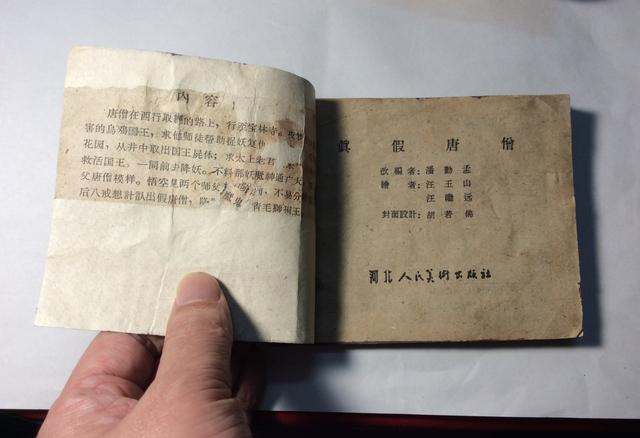 内容
唐僧在西行取經的路上，行示宝林寺。夜梦
害的烏鷄国王，求他师徒帮助捉妖复仇
花园，从井中取出国王屍体，求太上老君
救活国王。一同前去降妖。不料那妖魔神通广大
父唐僧模样。悟空見两个师父 不易分
后八戒想計認出假唐僧， 青毛獅
眞假唐僧
改編者：潘勤孟
繪者：汪玉山
汪瞻远
封面設計：胡若佛
河北人民美術出版社